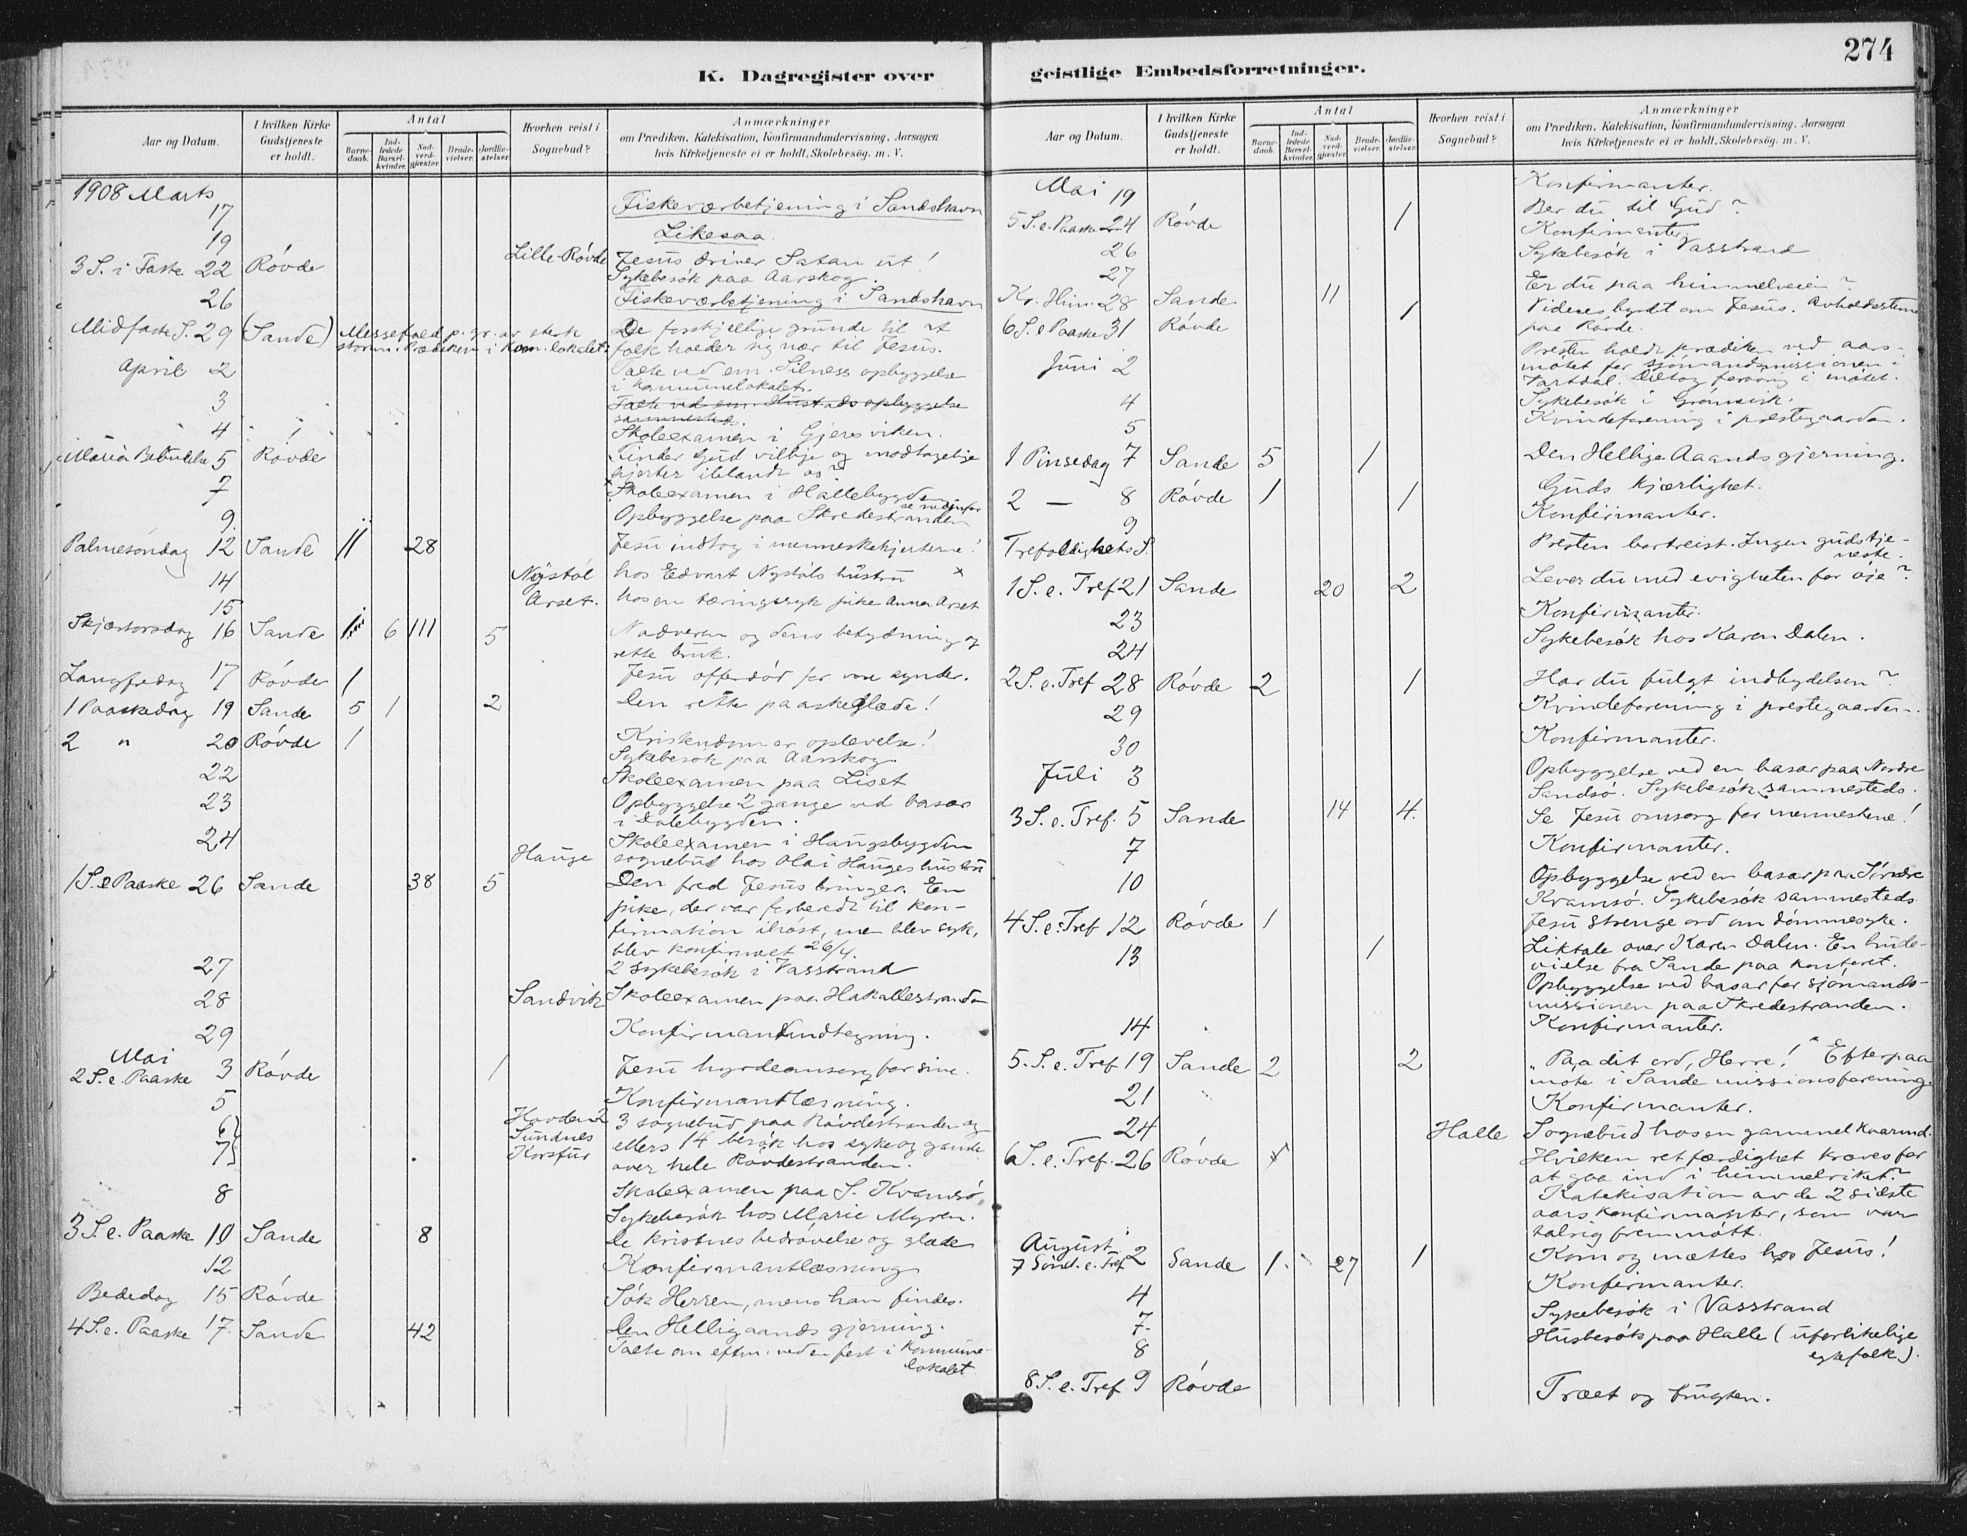 274
K. Dagregister over geistlige Embedsforretninger.
Aar og Datum.
I hvilken Kirke Gudstjeneste er holdt.
Antal
Barnedaab.
Indledede Barselkvinder.
Nadverdgjester
Brudevielser.
Jordfæstelser.
Hvorhen reist i Sognebud?
Anmærkninger
om Prædiken, Katekisation, Konfirmandundervisning, Aarsagen
hvis Kirketjeneste ei er holdt, Skolebesøg. m. V.
1908 Marts
17 Fiskeværbetjening i Sandshavn
19 Likesaa.
3 S. i Faste 22 Røvde Lille-Røvde Jesus driver Satan ut!
Sykebesøk paa Aarskog.
26 Fiskeværbetjening i Sandshavn
Midfaste S. 29 (Sande) Messefald p. gr. av sterk De forskjellige grunde til at
storm. Prædiken i kom. lokalet. folk holder sig nær til Jesus.
April 2 Talte ved em. Silness opbyggelse
i kommunelokalet.
3 Talte ved em. Hustads opbyggelse
sammesteds.
4 Skoleexamen i Gjersviken.
Mariæ Bebudelse 5 Røvde Finder Gud villige og modtagelige
hjerter iblandt os?
7 Skoleexamen i Hallebygden
se nedenfor
9. Opbyggelse paa Skredestranden
Palmesøndag 12 Sande 11 28 Jesu indtog i menneskehjerterne!
14 Nystøl hos Edvart Nystøls hustru x
15 Årset. hos en tæringssyk pike Anna Årset
Skjærtorsdag 16 Sande 6 111 5 Nadveren og dens betydning og
rette bruk.
Langfredag 17 Røvde 1 Jesu offerdød for vore synder.
1 Paaskedag 19 Sande 5 1 2 Den rette paaskeglæde!
2 " 20 Røvde 1 Kristendom er oplevelse!
Sykebesøk paa Aarskog
22 Skoleexamen paa Liset
23 Opbyggelse 2 gange ved basar
i Dalebygden.
24 Skoleexamen i Haugsbygden
Hauge sognebud hos Olai Hauges hustru
1 S. e Paaske 26 Sande 38 5 Den fred Jesus bringer. En
pike, der var forberedt til kon-
firmation ihøst, men blev syk,
blev konfirmeret 26/4.
27 2 sykebesøk i Vasstrand
28 Sandvik Skoleexamen paa Hakallestranden
29 Konfirmandindtegning.
Mai
2 S. e. Paaske 3 Røvde 1 Jesu hyrdeomsorg for sine.
5 Konfirmantlæsning.
6 Hovden 2 3 sognebud paa Røvdestranden og
7 Sundnes ellers 14 besøk hos syke og gamle
Korsfur over hele Røvdestranden.
8 Skoleexamen paa S. Kvamsø.
Sykebesøk hos Marie Myren.
3 S. e. Paaske 10 Sande 8 De kristnes bedrøvelse og glæde
12 Konfirmantlæsning
Bededag 15 Røvde Søk Herren, mens han findes.
4 S. e. Paaske 17. Sande 42 Den Helligaands gjerning.
Talte om eftm. ved en fest i Kommune-
lokalet
Aar og Datum.
I hvilken Kirke Gudstjeneste er holdt.
Antal
Barnedaab.
Indledede Barselkvinder.
Nadverdgjester
Brudevielser.
Jordfæstelser.
Hvorhen reist i Sognebud?
Anmærkninger
om Prædiken, Katekisation, Konfirmandundervisning, Aarsagen
hvis Kirketjeneste ei er holdt, Skolebesøg. m. V.
Mai 19 Konfirmanter.
5 S. e. Paaske 24 Røvde 1 Ber du til Gud?
26 Konfirmanter.
27 Sykebesøk i Vasstrand
Kr. Him. 28 Sande 11 Er du paa himmelveien?
6 S. e Paaske 31 Røvde 1 Videsbyrdet om Jesus. Avholdsstevne
paa Røvde.
Juni 2 Presten holdt prædiken ved aars-
møtet for sjømandsmissionen i
Vartdal. Deltog forøvrig i møtet.
4 Sykebesøk i Grønnevik.
5 Kvindeforening i prestegaarden.
1 Pinsedag 7 Sande 5 1 Den Hellige Aands gjerning.
2 — 8 Røvde 1 1 Guds kjærlighet.
9 Konfirmanter.
Trefoldighets S. Presten bortreist. Ingen gudstje-
neste.
1 S. e. Tref 21 Sande 20 2 Lever du med evigheten for øie?
23 Konfirmanter.
24 Sykebesøk hos Karen Dalen.
2 S. e. Tref 28 Røvde 2 1 Har du fulgt indbydelsen?
29 Kvindeforening i prestegaarden.
30 Konfirmanter.
Juli 3 Opbyggelse ved en basar paa Nordre
Sandsø. Sykebesøk sammesteds.
3 S. e. Tref. 5 Sande 14 4. Se Jesu omsorg for menneskene!
7 Konfirmanter.
10 Opbyggelse ved en basar paa Søndre
Kvamsø. Sykebesøk sammesteds.
4 S. e. Tref 12 Røvde 1 Jesu strenge ord om dømmesyke.
13 1 Liktale over Karen Dalen. En brude-
vielse fra Sande paa kontoret.
Opbyggelse ved basar for sjømands-
missionen paa Skredestranden.
14 Konfirmanter.
5. S. e. Tref 19 Sande 2 2 "Paa dit ord, Herre!" Efterpaa
møte i Sande missionsforening
21 Konfirmanter.
24 Halle Sognebud hos en gammel kvinde.
6 S. e. Tref. 26 Røvde Hvilken retfærdighet kræves for
at gaa ind i himmelriket?
Katekisation av de 2 sidste
aars konfirmanter, som var
talrig fremmøtt.
August
7 Sönd. e. Tref 2 Sande 1 27 1 Kom og mættes hos Jesus!
4 Konfirmanter.
7. Sykebesøk i Vasstrand
8 Husbesøk paa Halle (uforlikelige
egtefolk).
8 S. e. Tref 9 Røvde Træet og frugten.